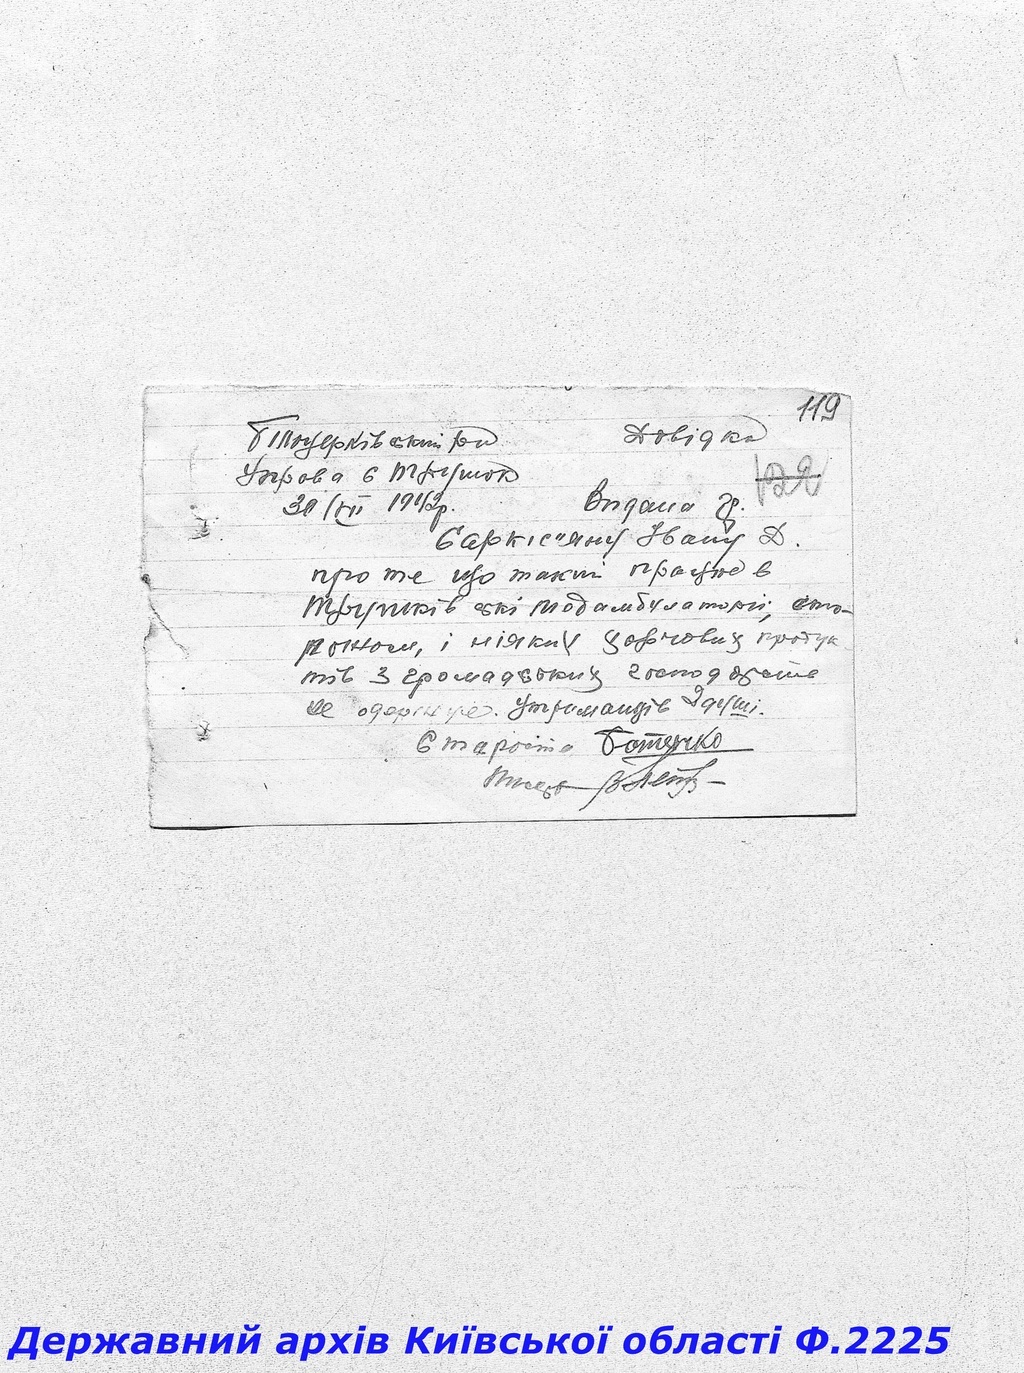 119
Білоцерківський Рай Довідка
Управа с Трушок
122
31/VII 1942р. Видана гр.
Саркіс"яну Івану Д.
про те що такий працює в
Трушківські підамбулаторії, сто-
рожом, і ніяких харчових продук
тів з громадських господарств
не одержує. Утриманців 2 душі.
Староста
Писарь
Державний архів Київської області Ф.2225